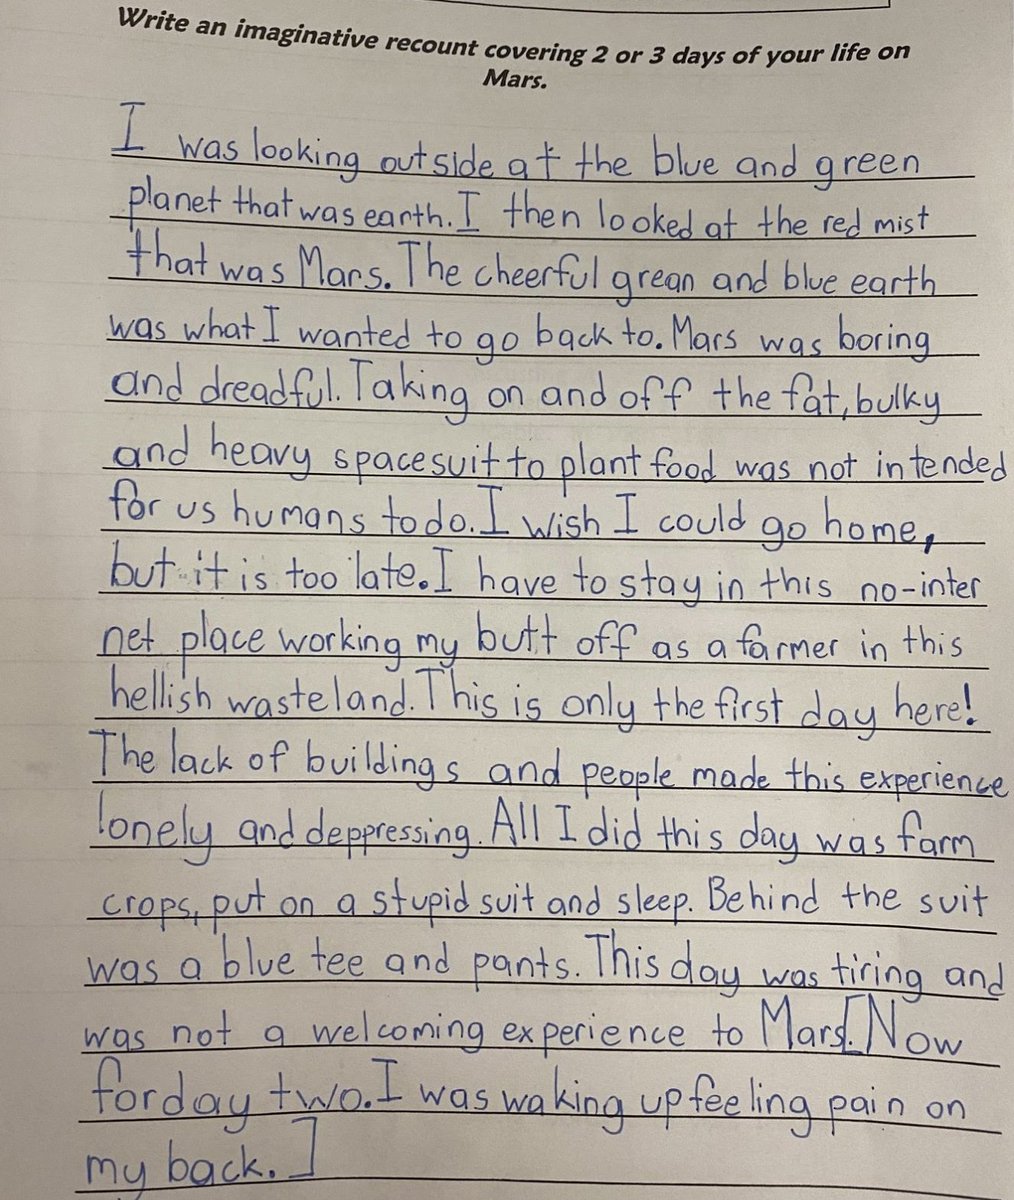 Write an imaginative recount covering 2 or 3 days of your life on
Mars.
I was looking outside at the blue and green
planet that was earth. I then looked at the red mist
that was Mars. The cheerful grean and blue earth
was what I wanted to go back to. Mars was boring
and dreadful. Taking on and off the fat, bulky
and heavy spacesuit to plant food was not intended
for us humans to do. I wish I could go home,
but it is too late. I have to stay in this no-inter
net place working my butt off as a farmer in this
hellish wasteland. This is only the first day here!
The lack of buildings and people made this experience
lonely and deppressing. All I did this day was farm
crops, put on a stupid suit and sleep. Behind the suit
was a blue tee and pants. This day was tiring and
was not a welcoming experience to Mars. [Now
for day two. I was waking up feeling pain on
my back.]